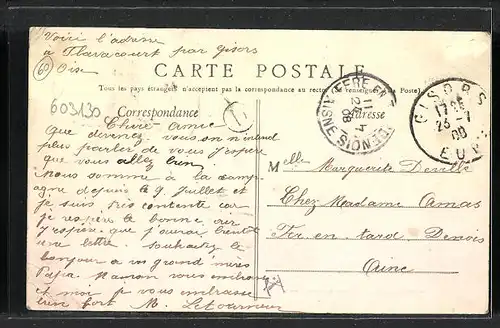 Voici l'adresse
à Flavacourt par Gisors
Oise
60
CARTE POSTALE
Tous les pays étrangers n'acceptent pas la correspondance au recto (se renseigner à la Poste)
603130
Correspondance
Adresse
GISORS
EURE
Chère amie
que devenez vous on n'entend
plus parler de vous j'espère
que vous allez bien
nous somme à la camp
agne depuis le 9 Juillet et
je suis très contente car
je respire le bonne
J'espère que j'aurai bientôt
une lettre Souhaitez le
bonjour a vos grand mères
Papa Maman vous embrasse
et moi je vous embrasse
bien fort M. Letourneur
Melle Marguerite Deville
Chez Madame Camas
Fer en tard Denois
Aine